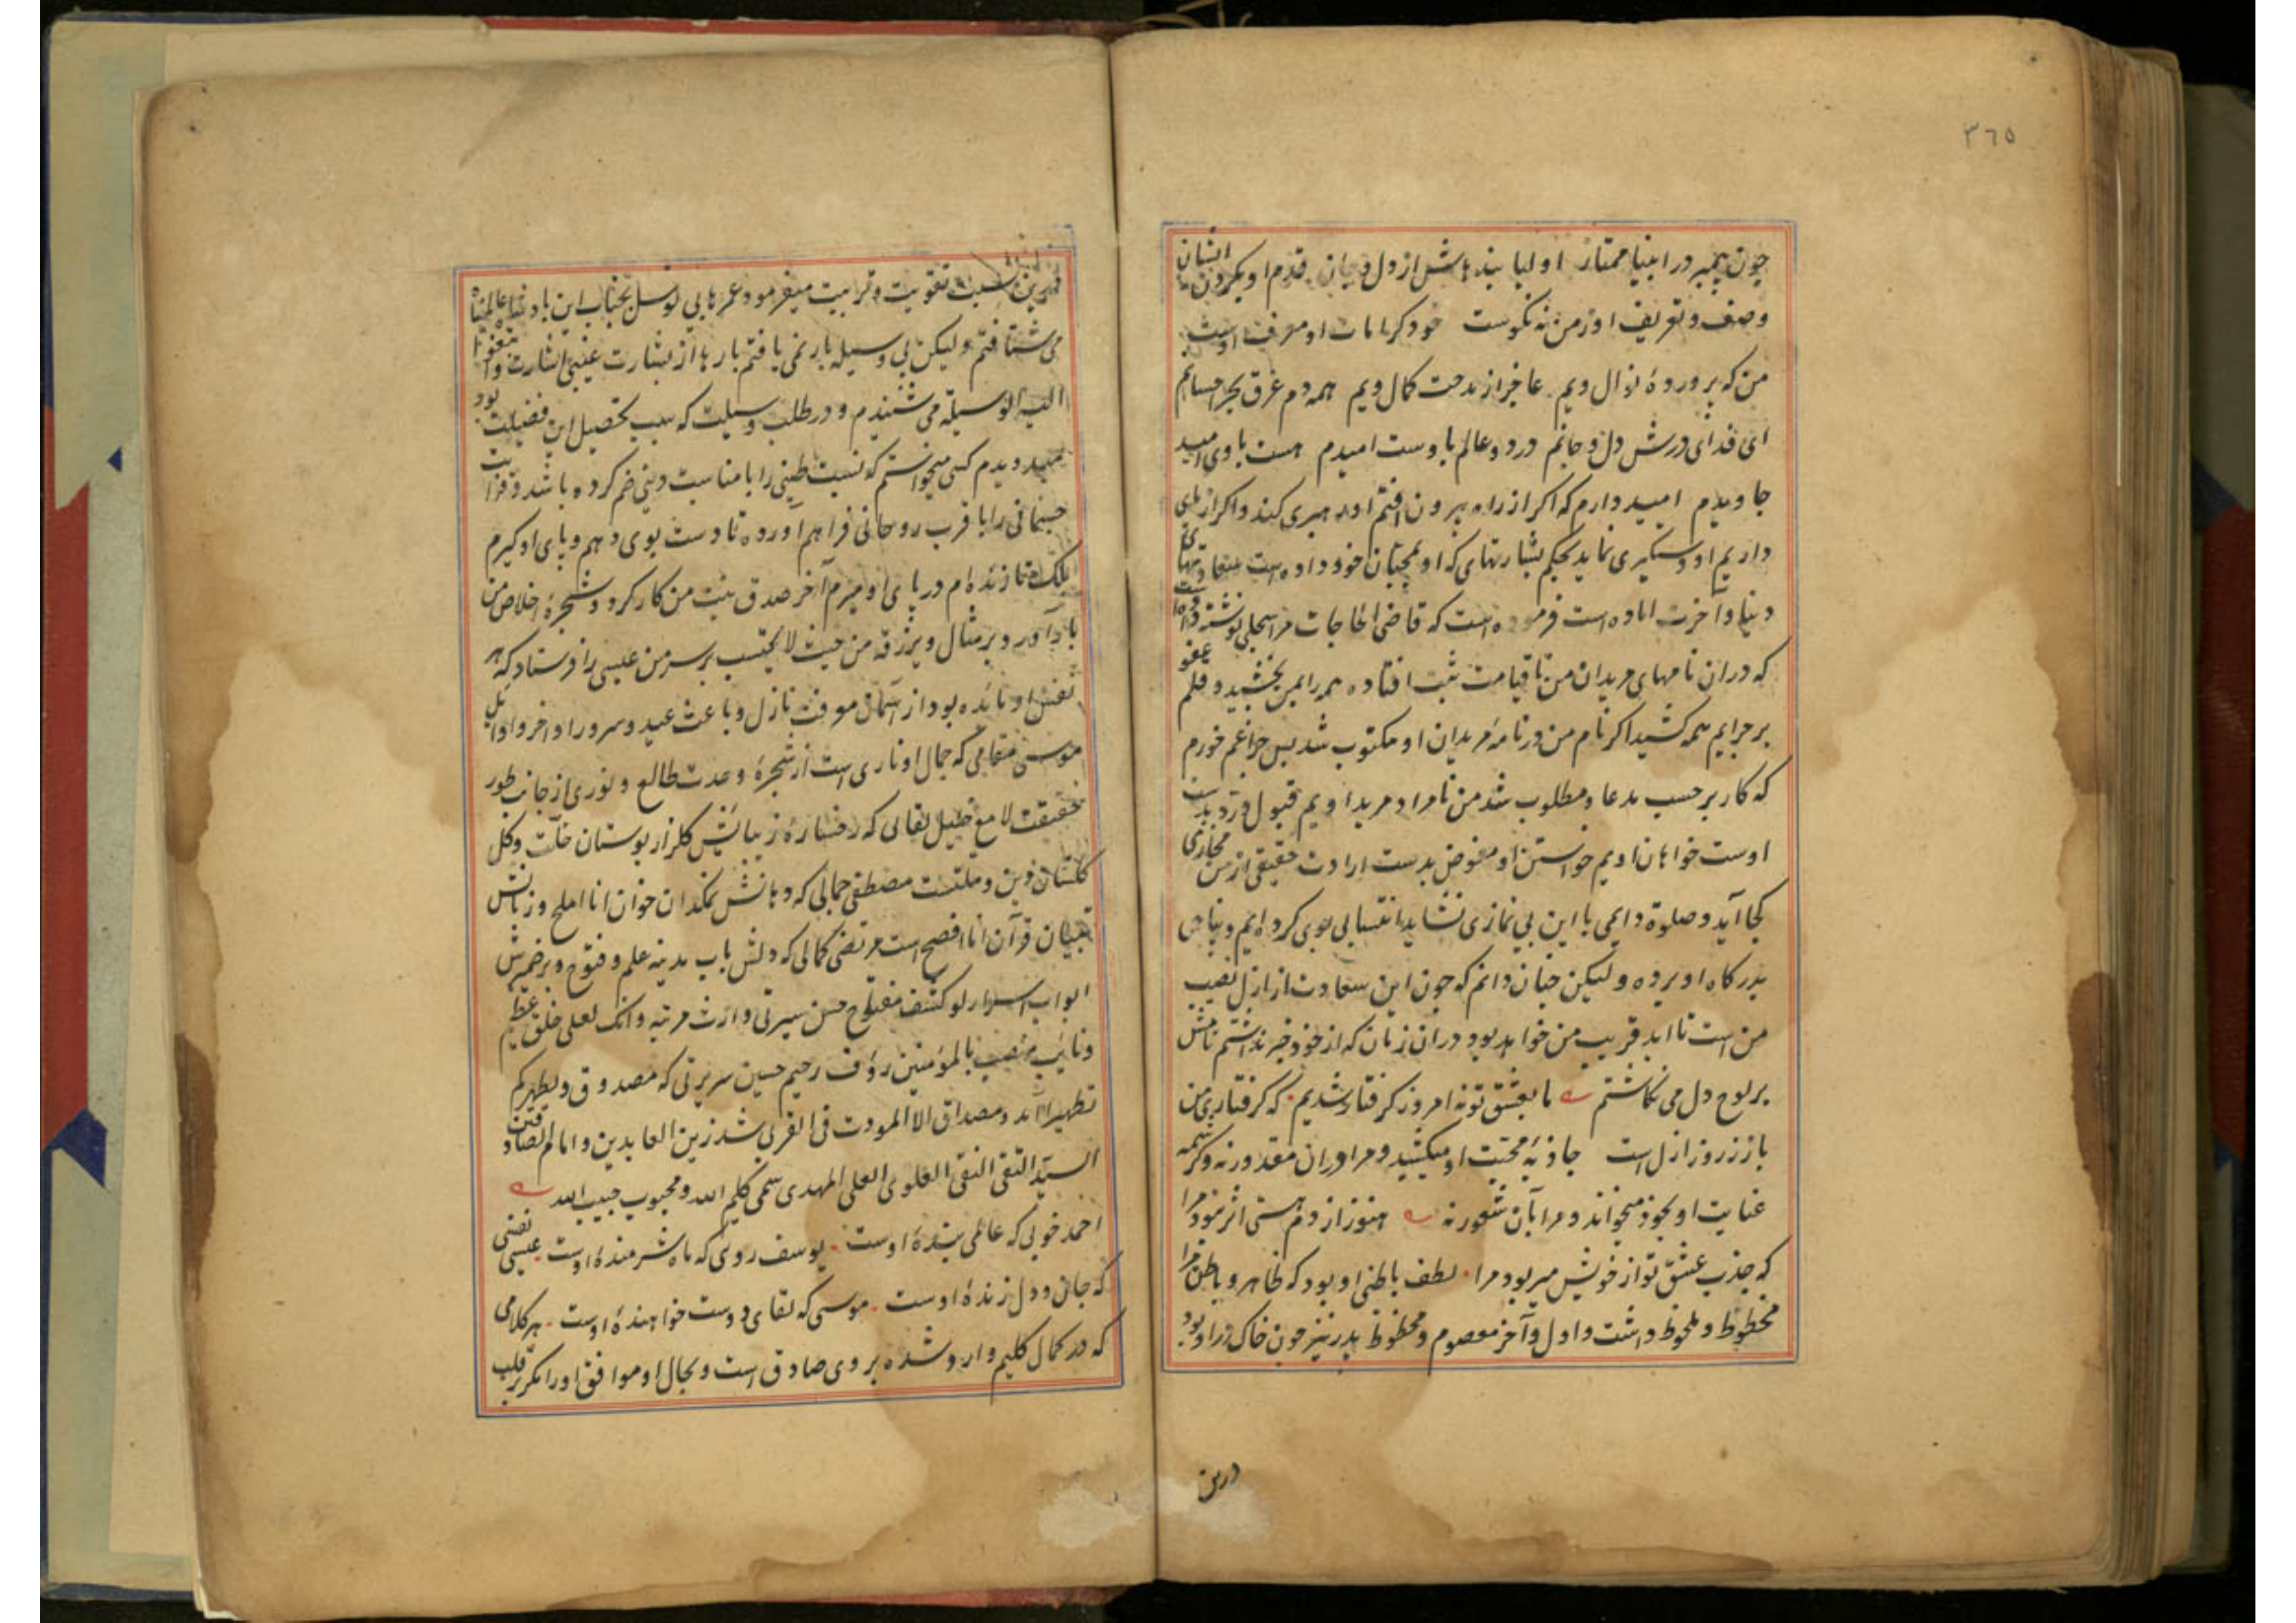 ٣٦٥
چون پیمبر در انبیا ممتاز اولیا بنده هاش از دل و جان قدم او بگردن ایشان
وصف و تعریف او ز من نه نکوست خود کرامات او معرف اوست
من که پرورده نوال ویم عاجز از مدحت کمال ویم همه دم غرق بحر احسانم
ای فدای درش دل و جانم در دو عالم باوست امیدم هست باوی امید
جاویدم امیدوارم که اکر از راه بیرون افتم او رهبری کند و اکر از پای
در ایم او دستکیری نماید بحکم بشارتهای که او بمحبان خود داده است
دنیا و آخرت اماده است فرموده است که قاضی الحاجات مرا سجلی نوشته داده
که دران نامهای مریدان من تا قیامت ثبت افتاده همه را بمن بخشید و قلم عفو
بر جرایم همه کشید اکر نام من در نامه مریدان او مکتوب شد پس چرا غم خورم
که کار بر حسب مدعا و مطلوب شد من نامراد مرید اویم قبول و رد بدست
اوست خواهان اویم خواستن او مفوض بدست ارادت حقیقی از من مجازی
کجا آید و صلوة دایمی با این بی نمازی نشاید انتسابی بوی کرده ایم و پناهی
بدرکاه او برده ولیکن چنان دانم که چون این سعادت از ازل نصیب
من است تا ابد قریب من خواهد بود و دران زمان که از خود خبر نداشتم نامش
بر لوح دل می نکاشتم ما بعشق تو نه امروز کرفتار شدیم که کرفتاری من
با تو ز روز ازل است جاذبه محبت او میکشید و مرا دران مقدور نه و کرشمه
عنایت او بخود میخواند و مرا بآن شعور نه هنوز از دم هستی اثر نبود مرا
که جذب عشق تو از خویش میربود مرا لطف باطنی او بود که ظاهر و باطن مرا
محظوظ و ملحوظ داشت و اول و آخر معصوم و محفوظ پدر نیز چون خاک در او بود
درین
درین نسبت تقویت و تربیت میفرمود و عمرها پی توسل بجناب این بادشاه عالم پناه
می شتافتم ولیکن بی وسیله بار نمی یافتم بارها از بشارت غیبی اشارت وابتغوا
الیه الوسیلة می شنیدم و در طلب وسیلت که سبب تحصیل این فضیلت بود
میدویدم کسی میخواستم که نسبت طینی را با مناسبت دینی ضم کرده باشد و قرابت
جسمانی را با قرب روحانی فراهم آورده تا دست بوی دهم و پای او کیرم
بلکه تا زنده ام در پای او میرم آخر صدق نیت من کار کرد و شجره اخلاص من
بار آورد و بر مثال ویرزقه من حیث لا یحتسب بر سر من عیسی را فرستاد که هر
نفس او مائده بود از آسمان معرفت نازل و باعث عید و سرور اواخر و اوایل
موسی مقامی که جمال او ناری است از شجرهٔ وحدت طالع و نوری از جانب طور
حقیقت لامع خلیل لقائی که رخساره زیبایش کلزار بوستان خلت و کل
کلستان دین و ملتست مصطفی جمالی که دهانش نمکدان خوان انا املح و زبانش
تبیان قرآن انا افصح است مرتضی کمالی که دلش باب مدینه علم و فتوح و بر ضمیرش
ابواب اسرار لو کشف مفتوح حسن سیرتی وارث مرتبه وانک لعلی خلق عظیم
و نایب منصب بالمؤمنین رؤف رحیم حسین سریرتی که مصدوق ویطهرکم
تطهیرا آمد و مصداق الا المودت فی القربی شد زین العابدین و امام الصادقین
السید التقی النقی العلوی العلی المهدی سمی کلیم الله و محبوب حبیب الله
احمد خوبی که عالمی بنده اوست یوسف روی که ماه شرمنده اوست عیسی نفسی
که جان و دل زنده اوست موسی که لقای دوست خواهنده اوست هر کلامی
که در کمال کلیم وارد شده بر وی صادق است و بحال او موافق او را مکر بر قلب